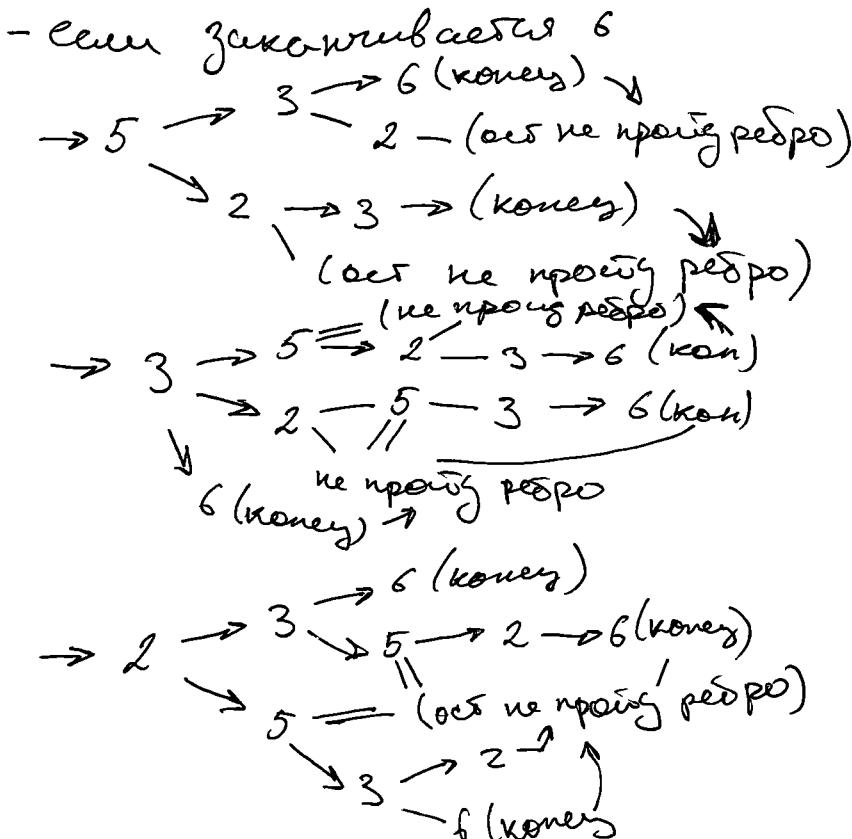 - если заканчивается 6
→ 5 → 3 → 6 (конец) ↘
2 — (ост не пройд ребро)
↘ 2 → 3 → (конец) ↘
(ост не пройд ребро)
(не пройд ребро)
→ 3 → 5 → 2 — 3 → 6 (кон)
↘ 2 — 5 — 3 → 6 (кон)
не пройд ребро
6 (конец) →
3 → 6 (конец)
→ 2 → 5 → 2 → 6 (конец)
5 = (ост не пройд ребро)
3 → 2
6 (конец